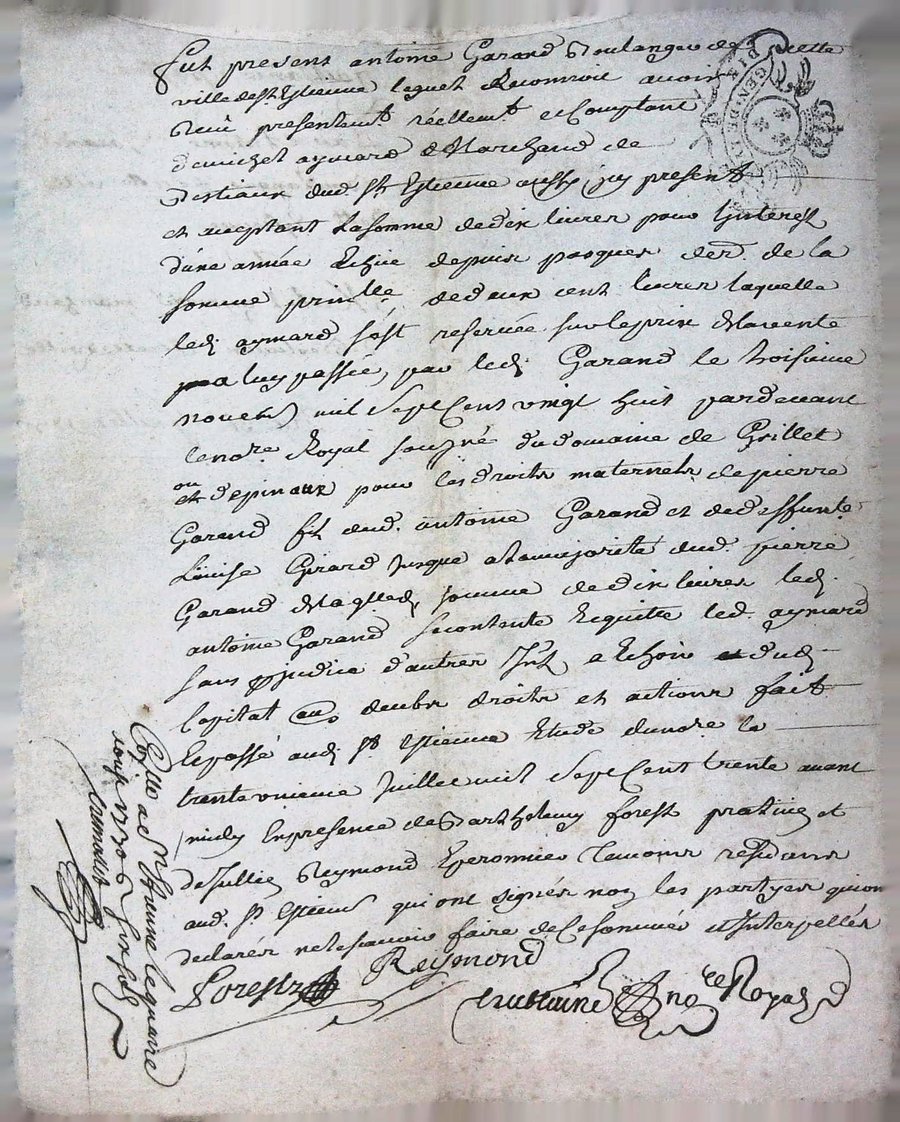 fut present antoine Garand Boulanger de cette
ville de st Estienne lequel Reconnoit avoir
Receü presentemt. réellemt et Comptant
de michel aymard Marchand de
Bestiaux dud. st Estienne aussy icy present
et acceptant La somme de dix livres pour Linterest
d'une année Echüe depuis pasques der. de la
somme prinlle. de deux cent livres laquelle
led aymard s'est reservée sur le prix de la vente
a luy passée, par led Garand le troisieme
novemb mil sept Cent vingt huit pardevant
le nore. Royal soupné du domaine de Grillet
ou
et d'epinaux pour les droits maternels de pierre
Garand fils dud. antoine Garand et de deffunte
Louise Girard Jusque a la majorité dud. pierre
Garand de laqlle. somme de dix livres led.
antoine Garand se contente Et quitte led. aymard
sans prejudice d'autres Int. a Echoir dud.
Capital au de ses droits et actions fait
Et passé aud. st Estienne Etude du nore le
trente unieme Juillet mil sept Cent trente avant
midy En presence de Barthelemy forest pratn. et
de Jullien Reymond Eperonnier temoins residans
aud. st Estienne qui ont signés non les partyes qui on
declarés ne le sçavoir faire de Ce sommées et Interpellés
Forest Reymond
nore Royal
Con.lle a st Etienne le quatre
aoust 1730 R
GEN. DE